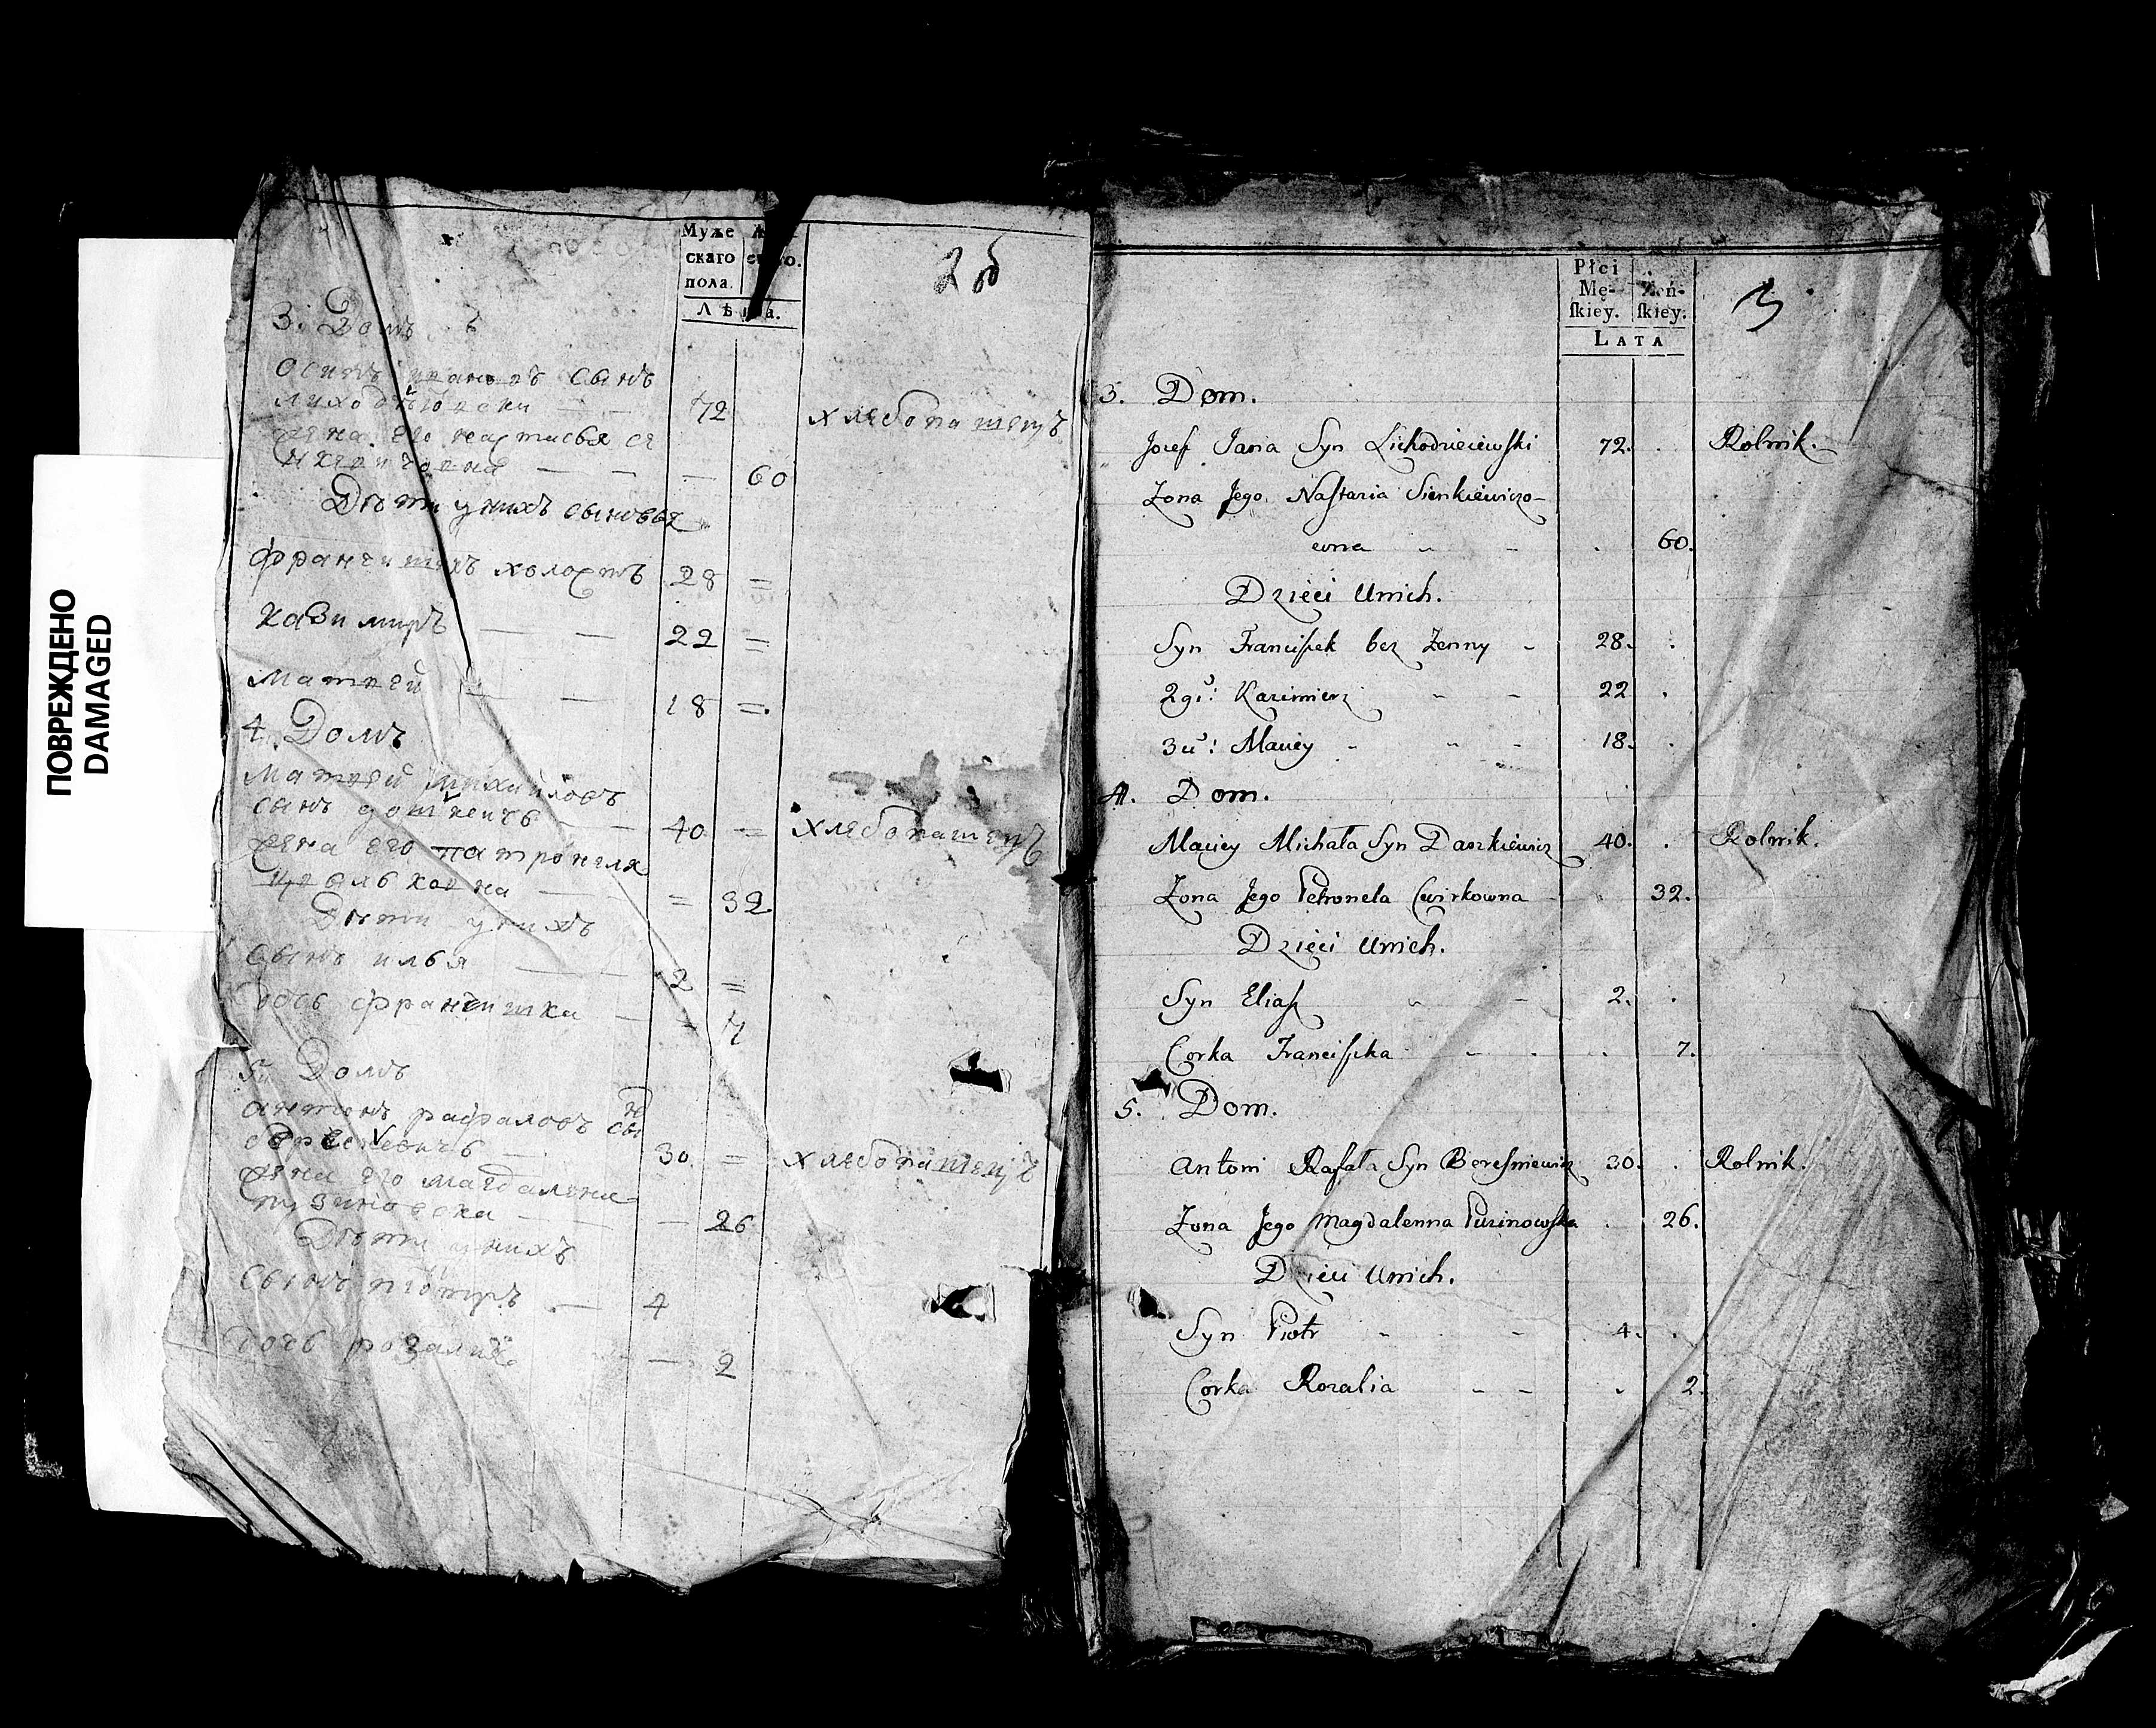 ПОВРЕЖДЕНО
DAMAGED
Муже
скаго
пола.
Лѣта.
2 об
3. Домъ
Осипъ Ивановъ сынъ
72
хлебопашецъ
жена его настасья се
60
Дѣти у нихъ сыновья
Францишекъ холостъ 28 =
Казимиръ — — 22 =
Матвей — — 18 =
4. Домъ
Матвей Михайловъ
сынъ — 40 = хлебопашецъ
жена его патронеля
= 32
Дѣти у нихъ
Сынъ илья — 2 =
дочь францишка — 7
5. Домъ
антонъ рафаловъ сынъ
30 = хлебопашецъ
жена его магдалена
пузиновска — — 26
Дѣти у нихъ
Сынъ піотръ — 4
дочь розалия — 2
Płci
Mę- Żeń-
ſkiey. ſkiey.
LATA
3
3. Dom.
Jozef Jana Syn Lichodzieiewſki 72. . Rolnik.
Zona Jego Naſtazia Sienkiewiczo-
wna . 60.
Dzieci Unich.
Syn Franciſzek bez Zenny 28. .
2gi: Kazimierz 22 .
3ci: Maciey 18. .
4. Dom.
Maciey Michała Syn Daszkiewicz 40. . Rolnik.
Zona Jego Petronela Cwirkowna . 32.
Dzieci Unich.
Syn Eliaſz 2. .
Corka Franciſzka . 7.
5. Dom.
Antoni Rafała Syn Bereſniewicz 30. . Rolnik.
Zona Jego Magdalenna Puzinowſka . 26.
Dzieci Unich.
Syn Piotr 4. .
Corka Rozalia . 2.